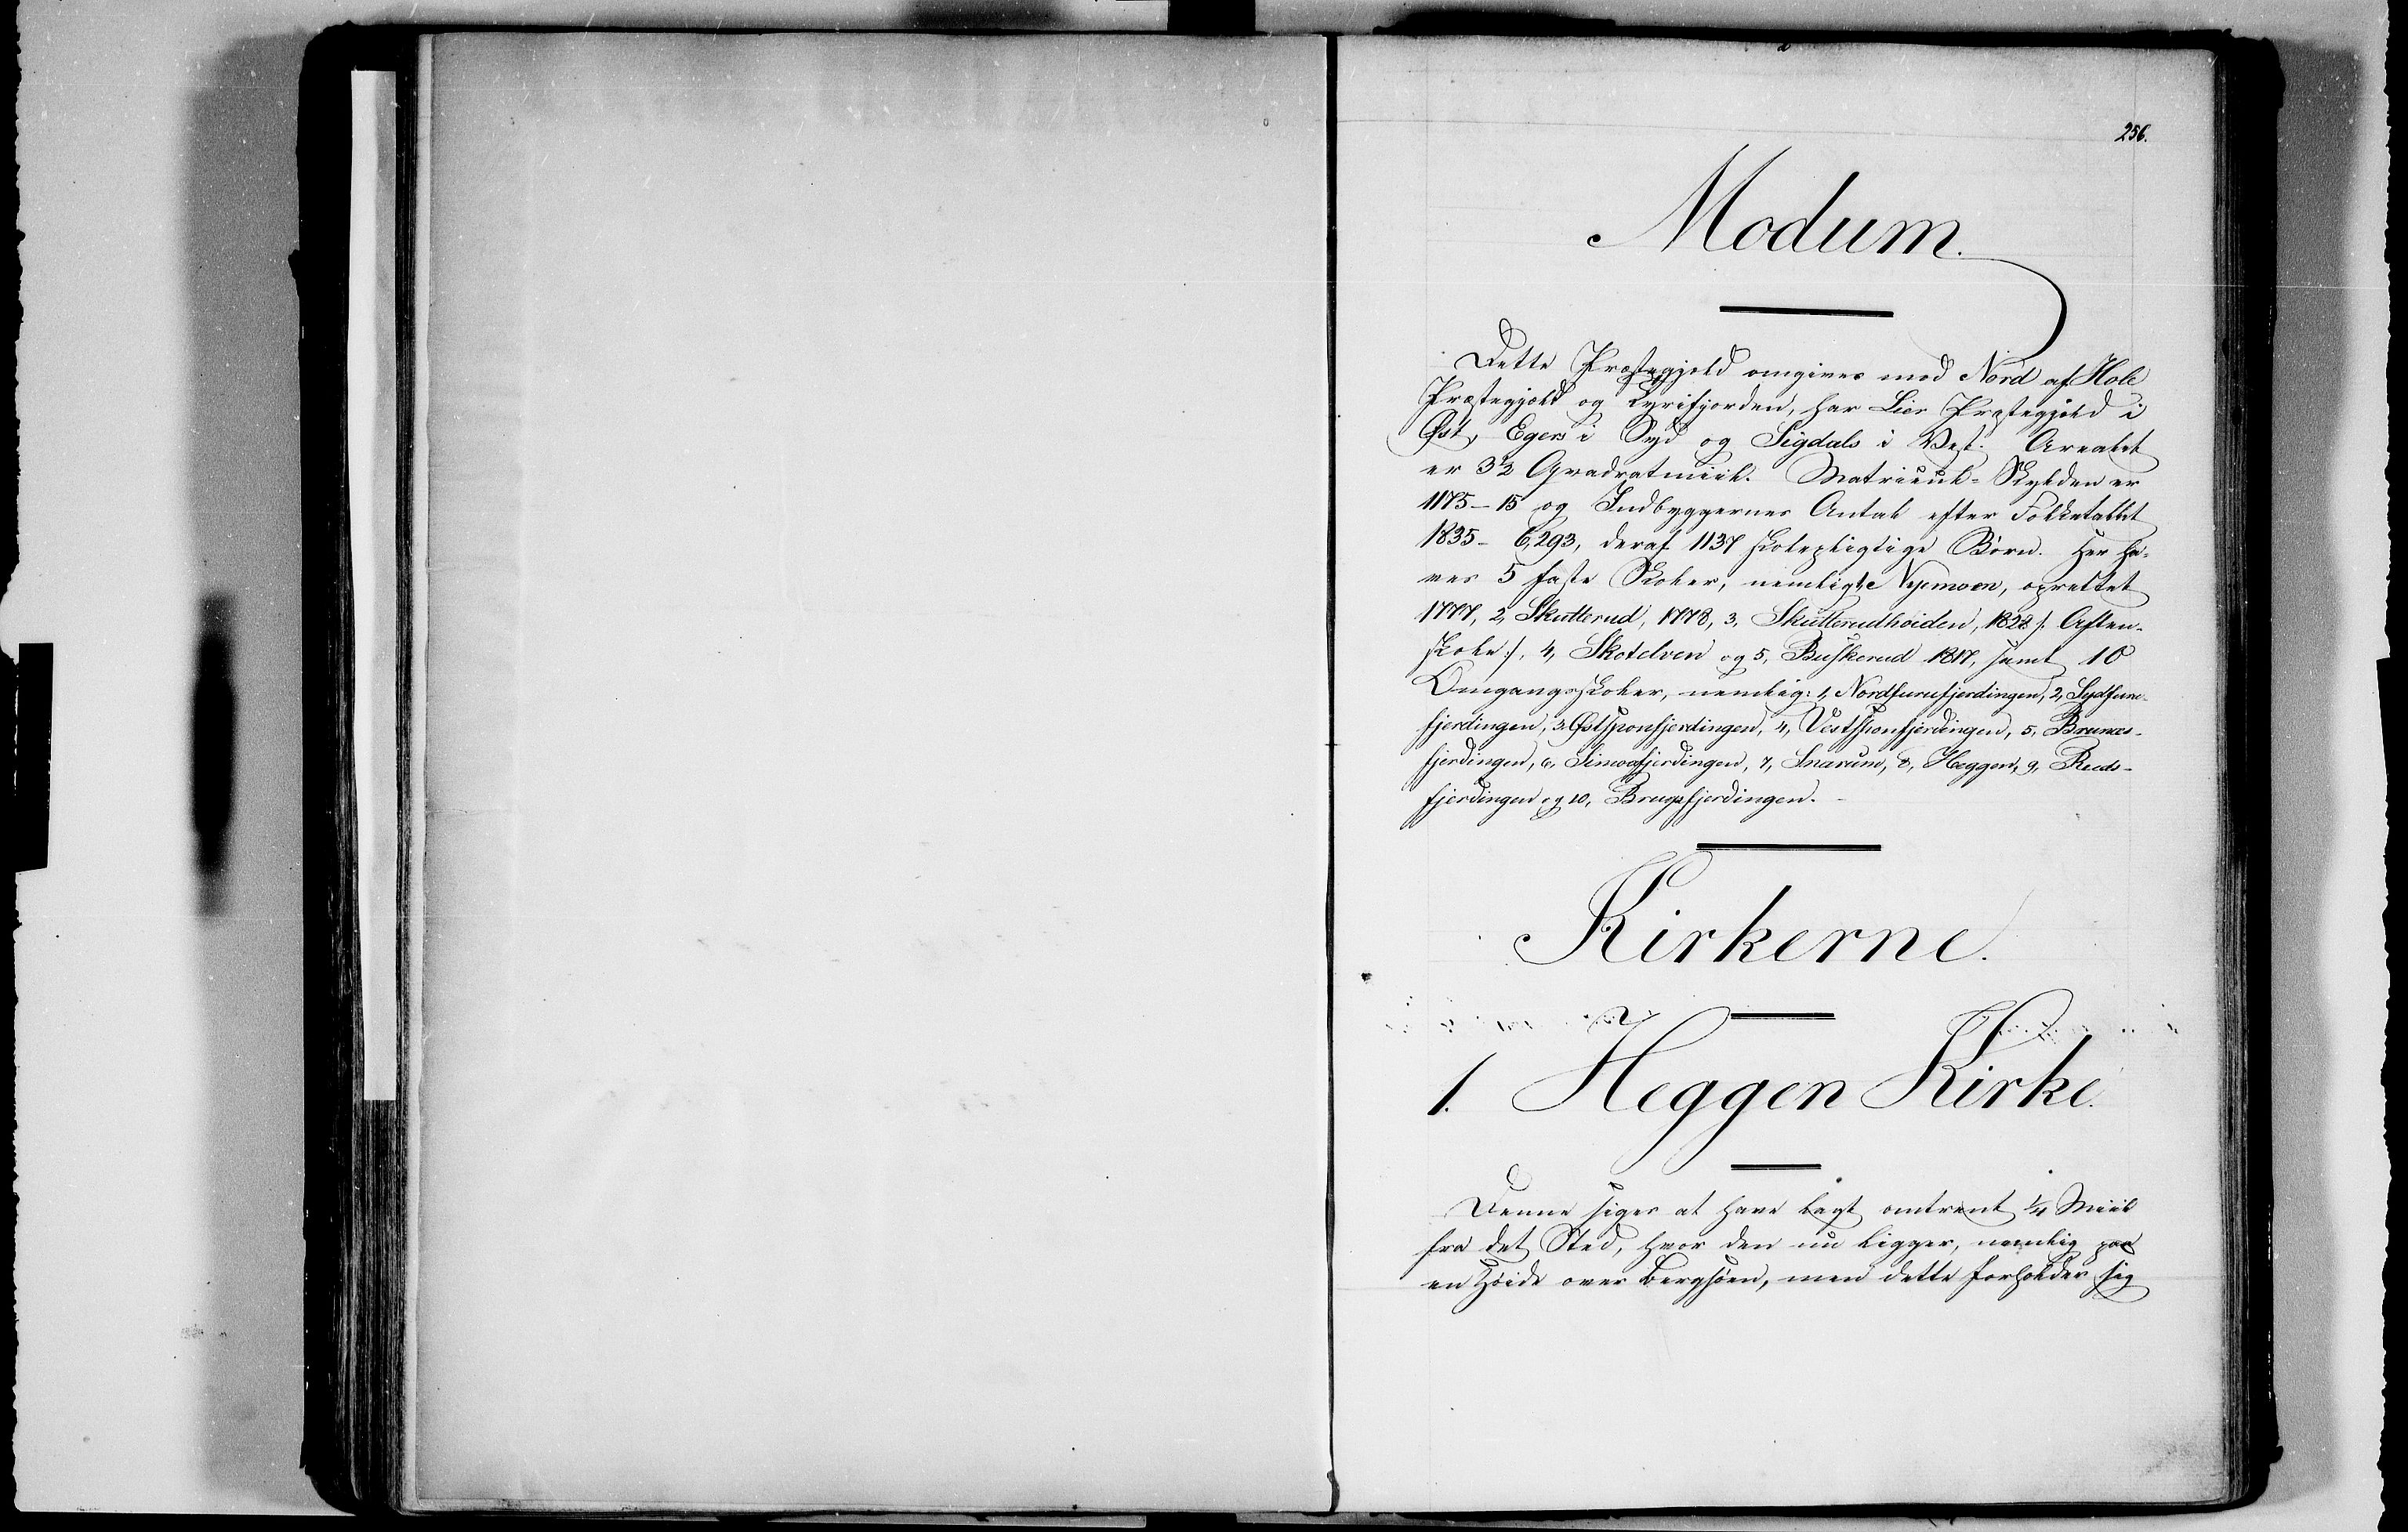 256.
Modum.
Dette Præstegjeld omgives mod Nord af Hole
Præstegjeld og Tyrifjorden, har Lier Præstegjeld i
Øst, Eger i Syd og Sigdals i Vest. Arealet
er 3½ Qvadratmiil. Matricul-Skylden er
1175-15 og Indbyggernes Antal efter Folketallet
1835- 6,293, deraf 1137 skolepligtige Børn. Her ha-
ves 5 faste Skoler, nemlig 1, Vijemoen, oprettet
1777, 2, Skutterud, 1778, 3, Skutterudhøiden, 1828 /: Aften-
skole :/, 4, Skotelven og 5, Buskerud 1817, samt 10
Omgangsskoler, nemlig: 1, Nordfurufjerdingen, 2, Sydfuru-
fjerdingen, 3, Østsponfjerdingen, 4, Vestsponfjerdingen, 5, Brunæs-
fjerdingen, 6, Simoafjerdingen, 7, Snarum, 8, Heggen, 9, Ruds-
fjerdingen og 10, Brugsfjerdingen.
Kirkerne.
1. Heggen Kirke.
Denne siges at have lagt omtrent ¼ Miil
fra det Sted, hvor den nu ligger, nemlig paa
en Høide over Bergsøen, men dette forholder sig